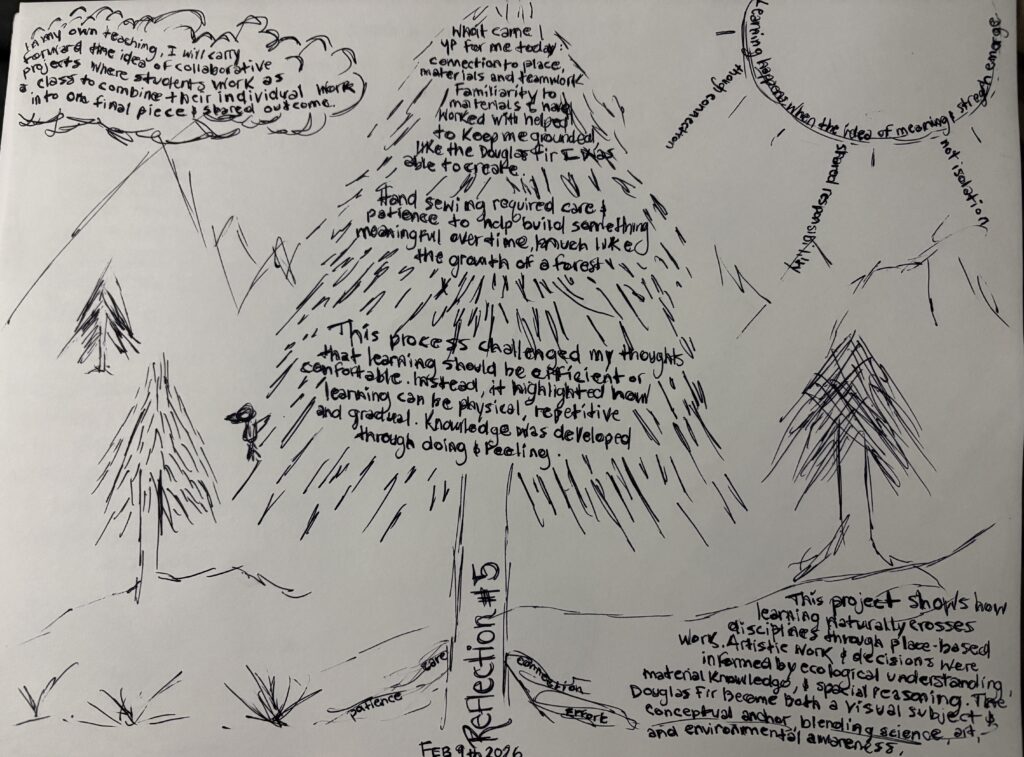 In my own teaching, I will carry
forward the idea of collaborative
projects where students work as
a class to combine their individual work
into one final piece & shared outcome.
What came
up for me today:
connection to place,
materials and teamwork
Familiarity to
materials I have
worked with helped
to keep me grounded
like the Douglas fir I was
able to create.
Hand sewing required care &
patience to help build something
meaningful over time, much like
the growth of a forest
This process challenged my thoughts
that learning should be efficient or
comfortable. Instead, it highlighted how
learning can be physical, repetitive
and gradual. Knowledge was developed
through doing & feeling.
Learning happens when the idea of meaning & strength emerge
though connection
shared responsibility
not isolation
care
patience
connection
effort
Reflection #5
FEB 9th 2026
This project shows how
learning naturally crosses
disciplines through place-based
work. Artistic work & decisions were
informed by ecological understanding,
material knowledge, & spacial reasoning. The
Douglas fir became both a visual subject &
conceptual anchor, blending science, art,
and environmental awareness.